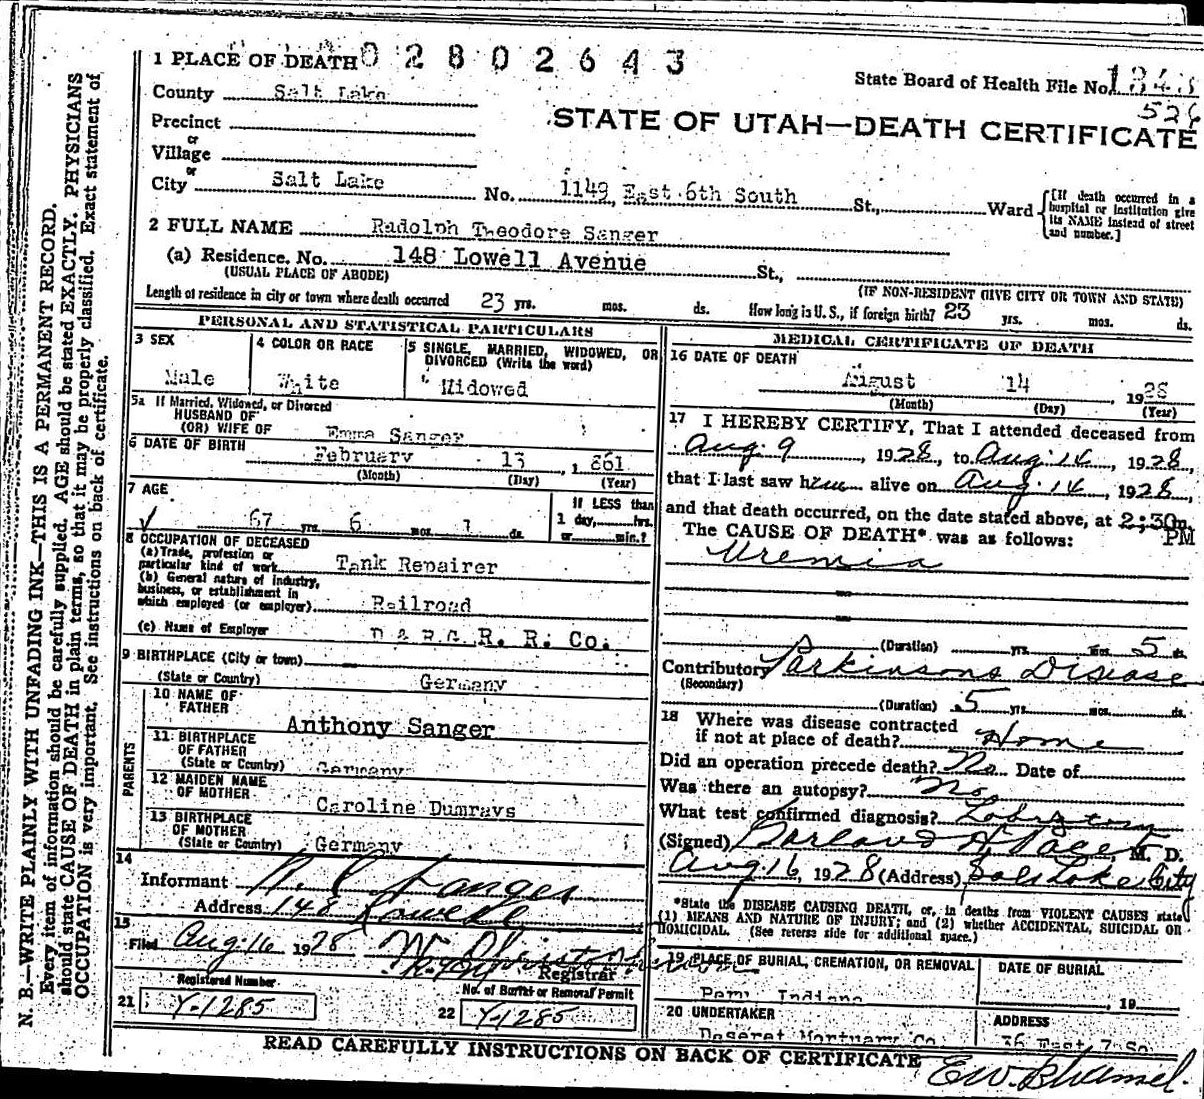 N. B.—WRITE PLAINLY WITH UNFADING INK—THIS IS A PERMANENT RECORD.
Every item of information should be carefully supplied. AGE should be stated EXACTLY. PHYSICIANS
should state CAUSE OF DEATH in plain terms, so that it may be properly classified. Exact statement of
OCCUPATION is very important. See instructions on back of certificate.
1 PLACE OF DEATH 02802643
State Board of Health File No.
County Salt Lake
STATE OF UTAH—DEATH CERTIFICATE
Precinct
or
Village
or
City Salt Lake No. 1149 East 6th South St., Ward
[If death occurred in a
hospital or institution give
its NAME instead of street
and number.]
2 FULL NAME Radolph Theodore Sanger
(a) Residence. No. 148 Lowell Avenue St.,
(USUAL PLACE OF ABODE) (IF NON-RESIDENT GIVE CITY OR TOWN AND STATE)
Length of residence in city or town where death occurred 23 yrs. mos. ds. How long in U.S., if foreign birth? 23 yrs. mos. ds.
PERSONAL AND STATISTICAL PARTICULARS
3 SEX
Male
4 COLOR OR RACE
White
5 SINGLE, MARRIED, WIDOWED, OR
DIVORCED (Write the word)
Widowed
5a If Married, Widowed, or Divorced
HUSBAND OF
(OR) WIFE OF Emma Sanger
6 DATE OF BIRTH February 13, 1861
(Month) (Day) (Year)
7 AGE
67 yrs. 6 mos. 1 ds.
If LESS than
1 day, hrs.
or min.?
8 OCCUPATION OF DECEASED
(a) Trade, profession or
particular kind of work Tank Repairer
(b) General nature of industry,
business, or establishment in
which employed (or employer) Railroad
(c) Name of Employer D & R.G. R. R. Co.
9 BIRTHPLACE (City or town)
(State or Country) Germany
PARENTS
10 NAME OF
FATHER Anthony Sanger
11 BIRTHPLACE
OF FATHER
(State or Country) Germany
12 MAIDEN NAME
OF MOTHER Caroline Dumrays
13 BIRTHPLACE
OF MOTHER
(State or Country) Germany
14
Informant Sanger
Address 148 Lowell
15
Filed Aug. 16 1928
Registrar
Registered Number No. of Burial or Removal Permit
21 Y-1285 22 Y-1285
MEDICAL CERTIFICATE OF DEATH
16 DATE OF DEATH
August 14, 1928
(Month) (Day) (Year)
17 I HEREBY CERTIFY, That I attended deceased from
Aug. 9, 1928, to Aug. 14, 1928,
that I last saw him alive on Aug. 14, 1928,
and that death occurred, on the date stated above, at 2:30 m.
PM
The CAUSE OF DEATH* was as follows:
Uremia
(Duration) yrs. mos. 5 ds.
Contributory Parkinsons Disease
(Secondary)
(Duration) 5 yrs. mos. ds.
18 Where was disease contracted
if not at place of death? Home
Did an operation precede death? No Date of
Was there an autopsy? No
What test confirmed diagnosis? Labratory
(Signed) Garland H. Pace, M. D.
Aug 16, 1928 (Address) Salt Lake City
*State the DISEASE CAUSING DEATH, or, in deaths from VIOLENT CAUSES state
(1) MEANS AND NATURE OF INJURY; and (2) whether ACCIDENTAL, SUICIDAL OR
HOMICIDAL. (See reverse side for additional space.)
19 PLACE OF BURIAL, CREMATION, OR REMOVAL
Peru, Indiana
DATE OF BURIAL
, 19
20 UNDERTAKER
Deseret Mortuary Co.
ADDRESS
36 East 7 So.
READ CAREFULLY INSTRUCTIONS ON BACK OF CERTIFICATE